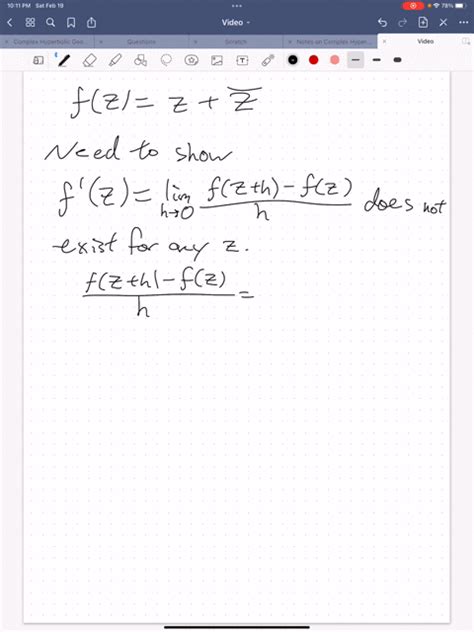 10:11 PM Sat Feb 19
78%
Video
Complex Hyperbolic Geo...
Questions
Scratch
Notes on Complex Hyper...
Video
f(z)= z + z̅
Need to show
f'(z)= lim h→0 f(z+h)-f(z) / h does not
exist for any z.
f(z+h)-f(z) / h =